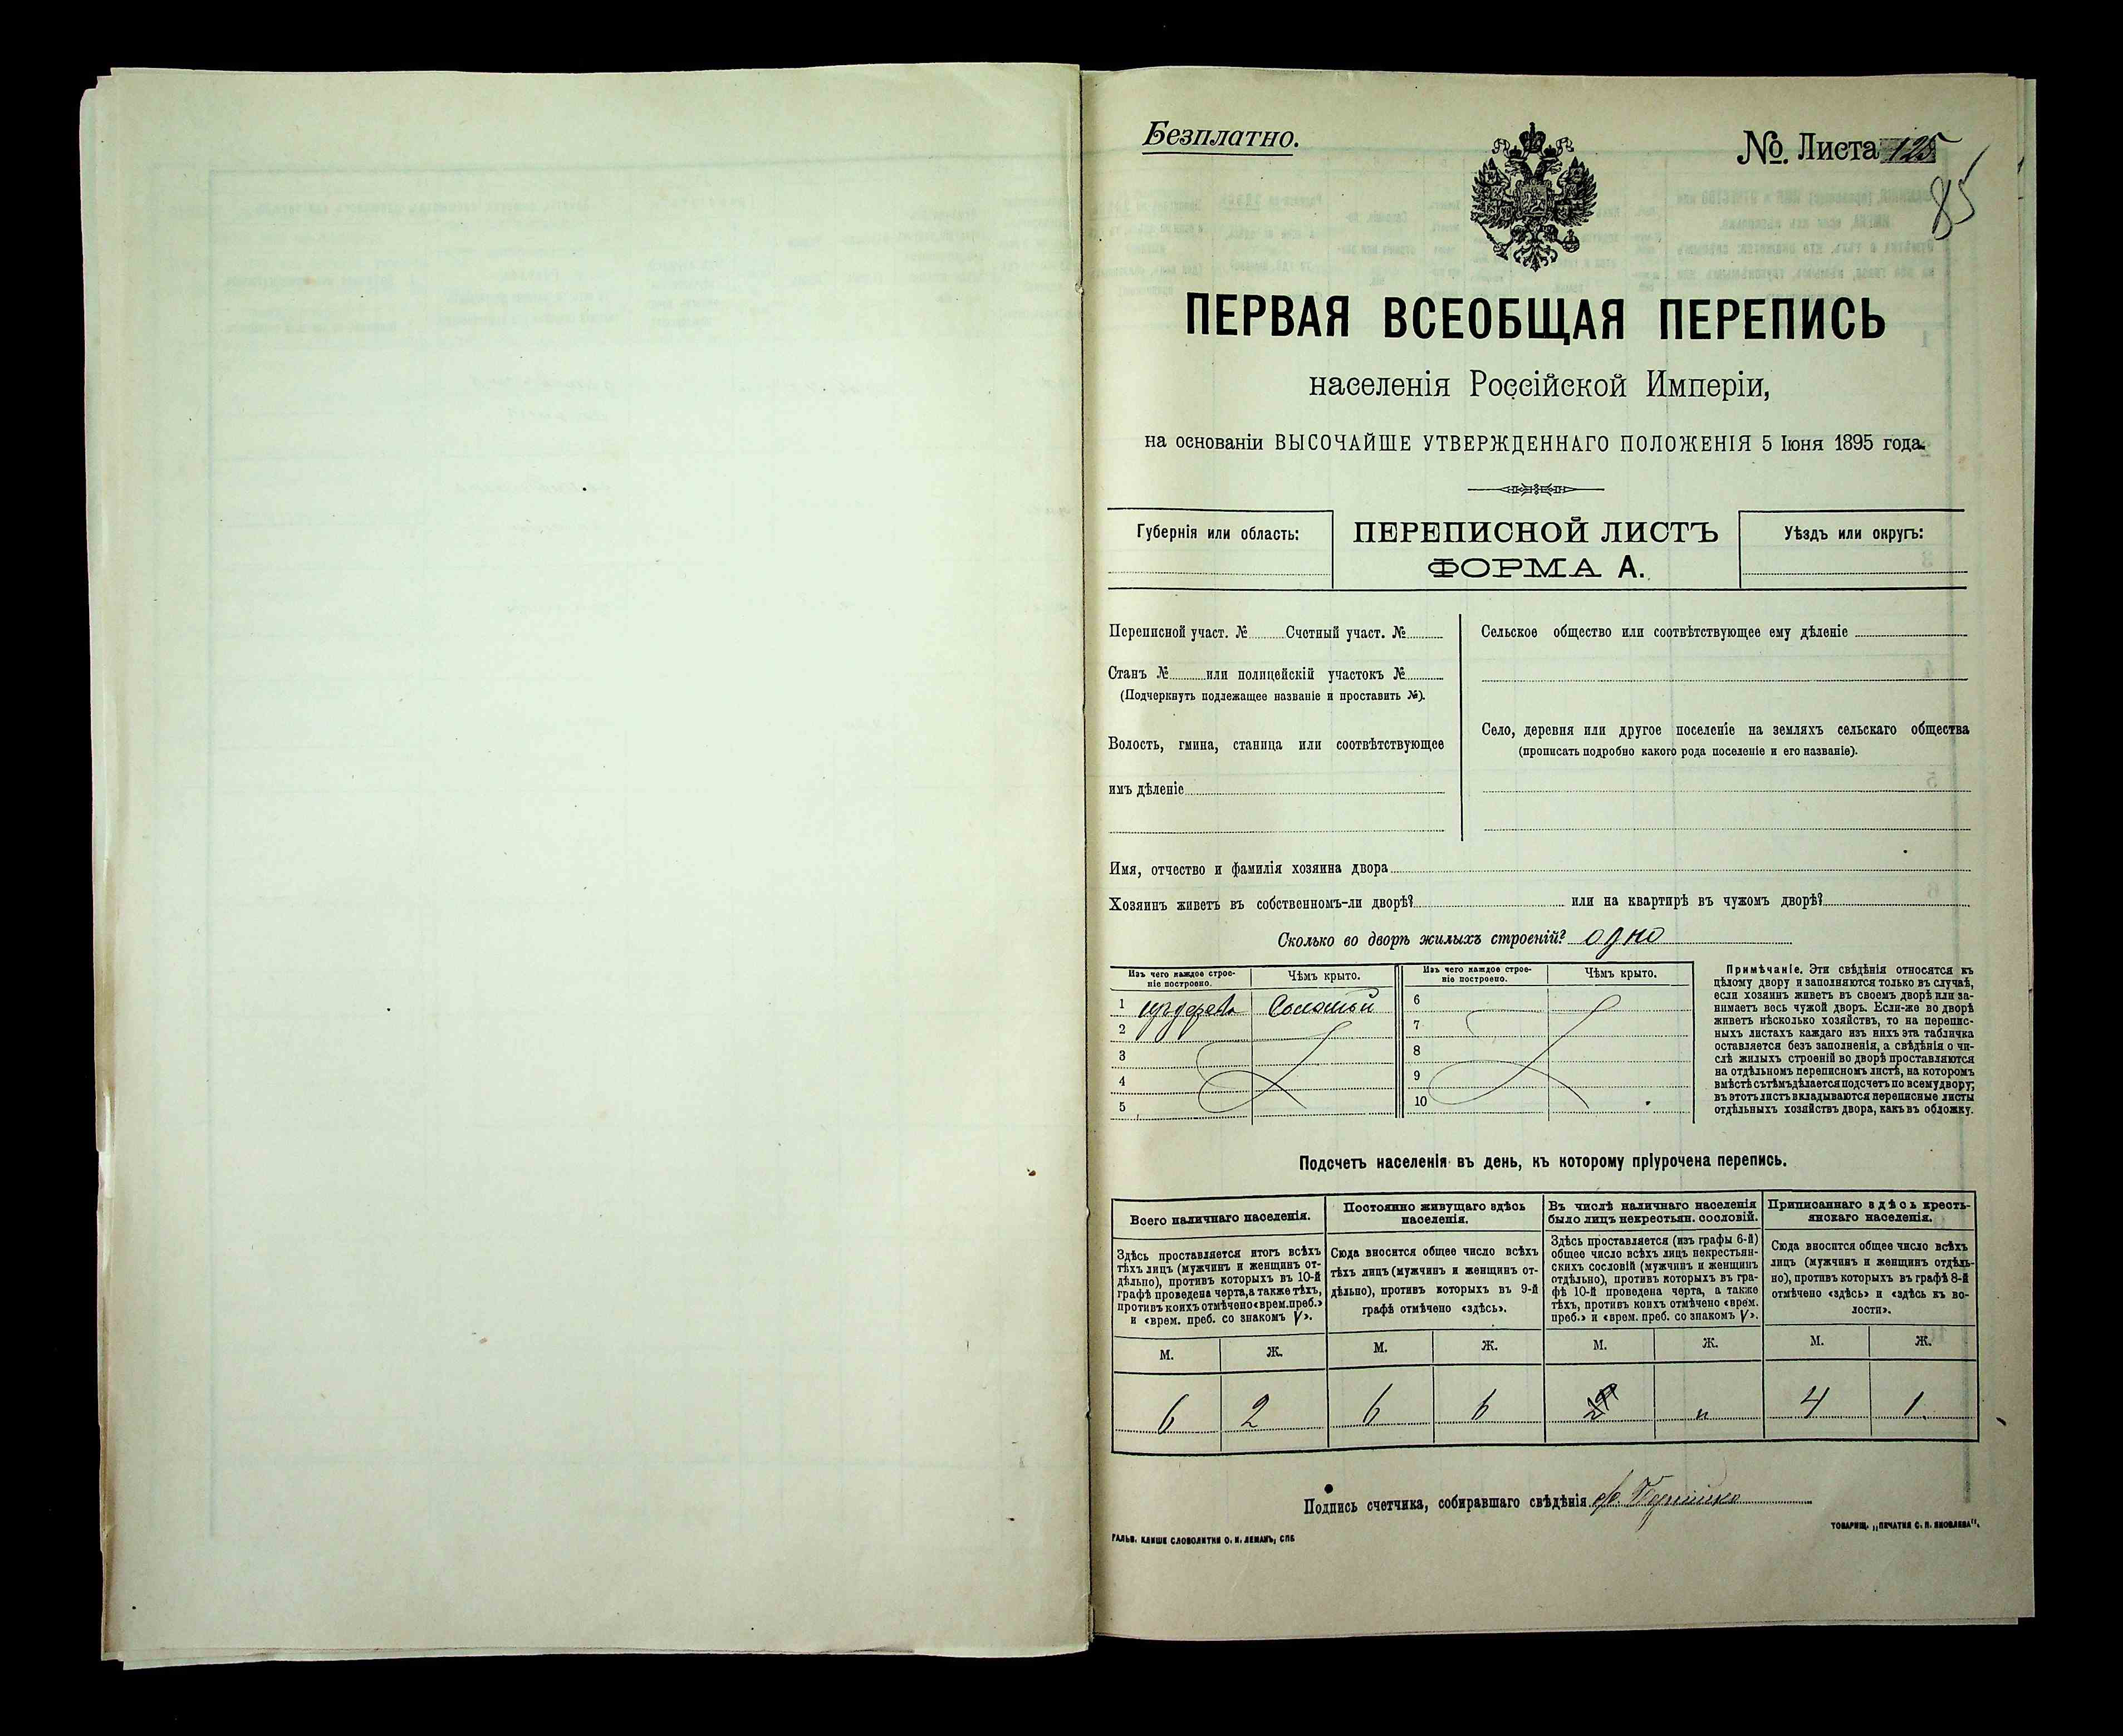 Безплатно.
№ Листа 125
85
ПЕРВАЯ ВСЕОБЩАЯ ПЕРЕПИСЬ
населенія Россійской Имперіи,
на основаніи ВЫСОЧАЙШЕ УТВЕРЖДЕННАГО ПОЛОЖЕНІЯ 5 Іюня 1895 года.
Губернія или область:
ПЕРЕПИСНОЙ ЛИСТЪ
ФОРМА А.
Уѣздъ или округъ:
Переписной участ. № Счетный участ. №
Станъ № или полицейскій участокъ №
(Подчеркнуть подлежащее названіе и проставить №).
Волость, гмина, станица или соотвѣтствующее
имъ дѣленіе
Сельское общество или соотвѣтствующее ему дѣленіе
Село, деревня или другое поселеніе на земляхъ сельскаго общества
(прописать подробно какого рода поселеніе и его названіе).
Имя, отчество и фамилія хозяина двора
Хозяинъ живетъ въ собственномъ-ли дворѣ? или на квартирѣ въ чужомъ дворѣ?
Сколько во дворѣ жилыхъ строеній? одно
Изъ чего каждое строе-
ніе построено.
Чѣмъ крыто.
1 изъ дерева Соломой
2
3
4
5
Изъ чего каждое строе-
ніе построено.
Чѣмъ крыто.
6
7
8
9
10
Примѣчаніе. Эти свѣдѣнія относятся къ
цѣлому двору и заполняются только въ случаѣ,
если хозяинъ живетъ въ своемъ дворѣ или за-
нимаетъ весь чужой дворъ. Если-же во дворѣ
живетъ нѣсколько хозяйствъ, то на перепис-
ныхъ листахъ каждаго изъ нихъ эта табличка
оставляется безъ заполненія, а свѣдѣнія о чи-
слѣ жилыхъ строеній во дворѣ проставляются
на отдѣльномъ переписномъ листѣ, на которомъ
вмѣстѣ съ тѣмъ дѣлается подсчетъ по всему двору;
въ этотъ листъ вкладываются переписные листы
отдѣльныхъ хозяйствъ двора, какъ въ обложку.
Подсчетъ населенія въ день, къ которому пріурочена перепись.
Всего наличнаго населенія.
Здѣсь проставляется итогъ всѣхъ
тѣхъ лицъ (мужчинъ и женщинъ от-
дѣльно), противъ которыхъ въ 10-й
графѣ проведена черта, а также тѣхъ,
противъ коихъ отмѣчено «врем. преб.»
и «врем. преб. со знакомъ V».
Постоянно живущаго здѣсь
населенія.
Сюда вносится общее число всѣхъ
тѣхъ лицъ (мужчинъ и женщинъ от-
дѣльно), противъ которыхъ въ 9-й
графѣ отмѣчено «здѣсь».
Въ числѣ наличнаго населенія
было лицъ некрестьян. сословій.
Здѣсь проставляется (изъ графы 6-й)
общее число всѣхъ лицъ некрестьян-
скихъ сословій (мужчинъ и женщинъ
отдѣльно), противъ которыхъ въ гра-
фѣ 10-й проведена черта, а также
тѣхъ, противъ коихъ отмѣчено «врем.
преб.» и «врем. преб. со знакомъ V».
Приписаннаго здѣсь кресть-
янскаго населенія.
Сюда вносится общее число всѣхъ
лицъ (мужчинъ и женщинъ отдѣль-
но), противъ которыхъ въ графѣ 8-й
отмѣчено «здѣсь» и «здѣсь къ во-
лости».
М. Ж. М. Ж. М. Ж. М. Ж.
6 2 6 6 „ 4 1
Подпись счетчика, собиравшаго свѣдѣнія
ГАЛЬВ. КЛИШЕ СЛОВОЛИТНИ О. И. ЛЕМАНЪ, СПБ
ТОВАРИЩ. „ПЕЧАТНЯ С. П. ЯКОВЛЕВА".